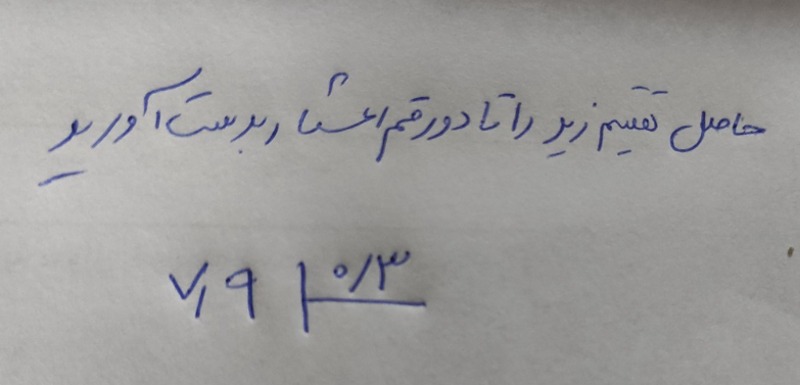 حاصل تقسیم زیر را تا دو رقم اعشار بدست آورید
۷٫۹ | ۰/۳